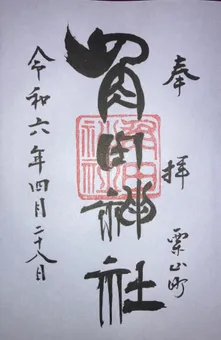 奉拝
栗山町
角田神社
令和六年四月二十八日